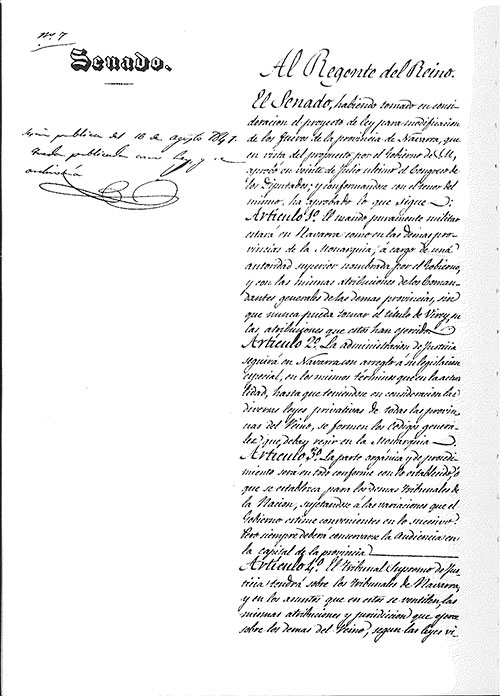 nº 7
Senado.
Sesion publica del 16 de agosto 1841.
Queda publicada como ley y se
archivará
Al Regente del Reino.
El Senado, habiendo tomado en consi-
deracion el proyecto de ley para modificacion
de los fueros de la provincia de Navarra, que
en vista del propuesto por el Gobierno de S.M.,
aprobó en veinte de Julio ultimo el Congreso de
los Diputados; y conformandose con el tenor del
mismo, ha aprobado lo que sigue:
Articulo 1º. El mando puramente militar
estará en Navarra como en las demas pro-
vincias de la Monarquia, á cargo de una
autoridad superior nombrada por el Gobierno,
y con las mismas atribuciones de los Coman-
dantes generales de las demas provincias, sin
que nunca pueda tomar el titulo de Virey, ni
las atribuciones que estos han ejercido.
Articulo 2º. La administracion de Justicia
seguirá en Navarra con arreglo á su legislacion
especial, en los mismos terminos que en la actua-
lidad, hasta que teniendose en consideracion las
diversas leyes privativas de todas las provin-
cias del Reino, se formen los Codigos genera-
les que deban regir en la Monarquia.
Articulo 3º. La parte orgánica y de procedi-
miento será en todo conforme con lo establecido, ó
que se establezca para los demas tribunales de
la Nacion, sujetandose á las variaciones que el
Gobierno estime convenientes en lo sucesivo.
Pero siempre deberá conservarse la Audiencia en
la capital de la provincia
Articulo 4º. El Tribunal Supremo de Jus-
ticia tendrá sobre los tribunales de Navarra,
y en los asuntos que en estos se ventilen, las
mismas atribuciones y jurisdicion que ejerce
sobre los demas del Reino, segun las leyes vi-